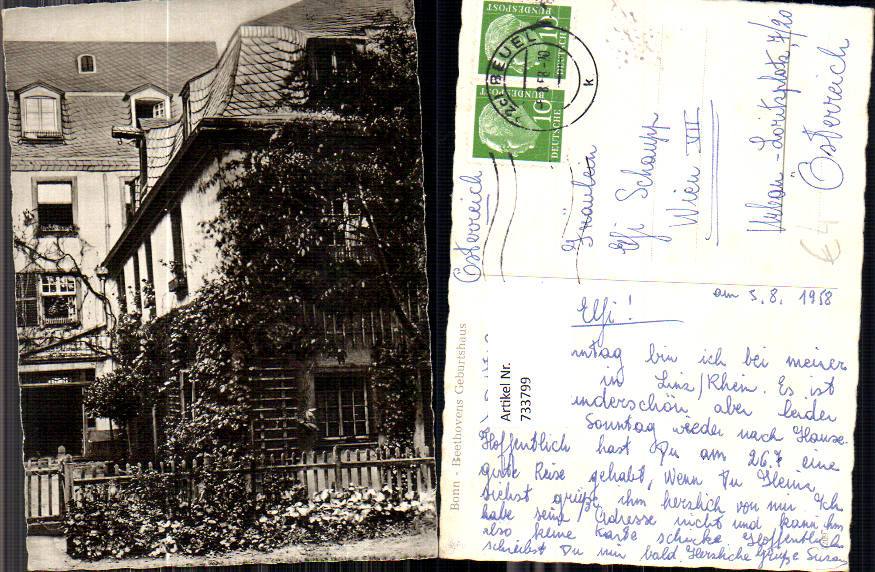 DEUTSCHE BUNDESPOST
10
DEUTSCHE BUNDESPOST
10
k
Österreich
Fräulein
Elfi Schaupp
Wien VII
Urban-Loritzplatz 7/20
Österreich
€4
Bonn - Beethovens Geburtshaus
Artikel Nr.
733799
am 5.8. 1958
Elfi!
ntag bin ich bei meiner
in Linz/Rhein. Es ist
underschön aber leider
Sonntag wieder nach Hause.
Hoffentlich hast Du am 26.7 eine
gute Reise gehabt, Wenn Du Heinz
siehst grüße ihm herzlich von mir. Ich
habe seine Adresse nicht und kann ihm
also keine Karte schicke Hoffentlich
schreibst Du mir bald. Herzliche Grüße Susan